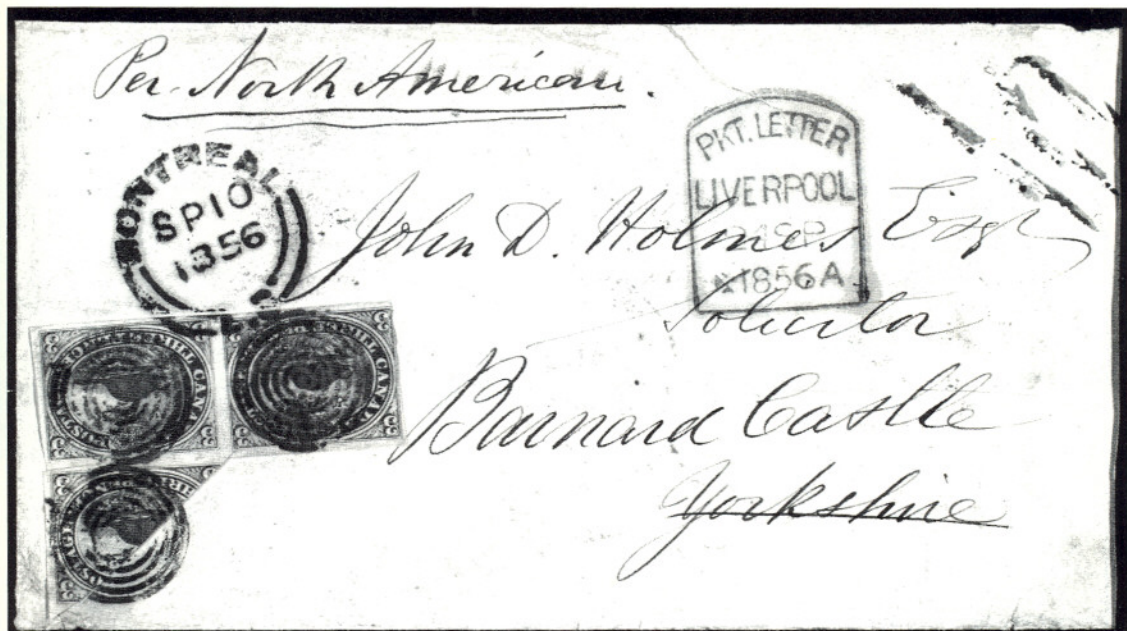 Per North American.
MONTREAL
SP 10
1856
PKT. LETTER
LIVERPOOL
SP
1856 A
John D. Holmes Esqr
Solicitor
Barnard Castle
Yorkshire
MILL CANADA